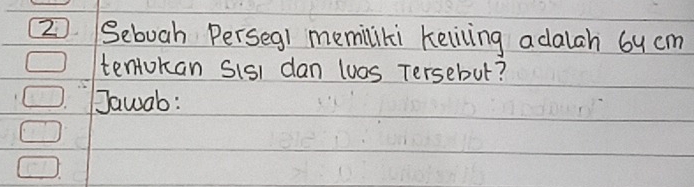 2. Sebuah Persegi memiliki keliling adalah 64 cm
tentukan sisi dan luas Tersebut?
Jawab: